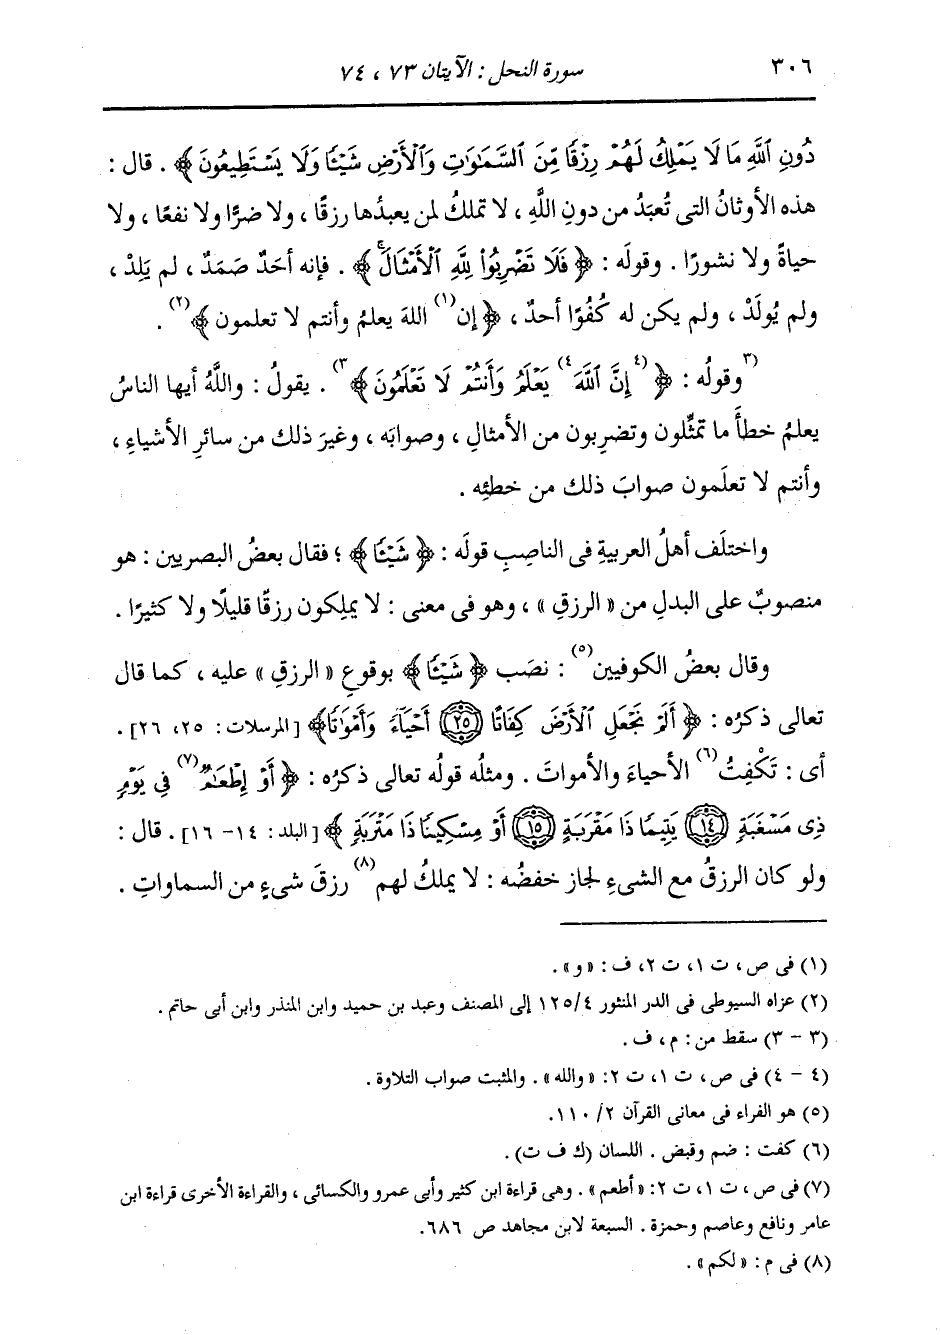 ٣٠٦ سورة النحل : الآيتان ٧٣ ، ٧٤
دُونِ ٱللَّهِ مَا لَا يَمْلِكُ لَهُمْ رِزْقًا مِّنَ ٱلسَّمَٰوَٰتِ وَٱلْأَرْضِ شَيْـًٔا وَلَا يَسْتَطِيعُونَ ﴾ . قال :
هذه الأوثانُ التى تُعبَدُ من دونِ اللَّهِ ، لا تملكُ لمن يعبدُها رزقًا ، ولا ضرًّا ولا نفعًا ، ولا
حياةً ولا نشورًا . وقولَه : ﴿ فَلَا تَضْرِبُوا۟ لِلَّهِ ٱلْأَمْثَالَ ۚ ﴾ . فإنه أحَدٌ صَمَدٌ ، لم يَلِدْ ،
ولم يُولَدْ ، ولم يكن له كُفُوًا أحدٌ ، ﴿ إن(١) اللهَ يعلمُ وأنتم لا تعلمون ﴾(٢) .
(٣ وقولُه : ﴿ (٤ إِنَّ ٱللَّهَ ٤) يَعْلَمُ وَأَنتُمْ لَا تَعْلَمُونَ ﴾ ٣) . يقولُ : واللَّهُ أيها الناسُ
يعلمُ خطأَ ما تمثِّلون وتضرِبون من الأمثالِ ، وصوابَه ، وغيرَ ذلك من سائرِ الأشياءِ ،
وأنتم لا تعلَمون صوابَ ذلك من خطئِه .
واختلَف أهلُ العربيةِ فى الناصِبِ قولَه : ﴿ شَيْـًٔا ﴾ ؛ فقال بعضُ البصريين : هو
منصوبٌ على البدلِ من « الرزقِ » ، وهو فى معنى : لا يملِكون رزقًا قليلًا ولا كثيرًا .
وقال بعضُ الكوفيين(٥) : نصَب ﴿ شَيْـًٔا ﴾ بوقوعِ « الرزقِ » عليه ، كما قال
تعالى ذكرُه : ﴿ أَلَمْ نَجْعَلِ ٱلْأَرْضَ كِفَاتًا ٢٥ أَحْيَآءً وَأَمْوَٰتًا ﴾ [المرسلات : ٢٥، ٢٦] .
أى : تَكْفِتُ(٦) الأحياءَ والأمواتَ . ومثلُه قولُه تعالى ذكرُه : ﴿ أَوْ إِطْعَـٰمٌ(٧) فِى يَوْمٍ
ذِى مَسْغَبَةٍ ١٤ يَتِيمًا ذَا مَقْرَبَةٍ ١٥ أَوْ مِسْكِينًا ذَا مَتْرَبَةٍ ﴾ [البلد : ١٤- ١٦] . قال :
ولو كان الرزقُ مع الشىءِ لجاز خفضُه : لا يملكُ لهم(٨) رزقَ شىءٍ من السماواتِ .
(١) فى ص ، ت ١، ت ٢، ف : « و» .
(٢) عزاه السيوطى فى الدر المنثور ١٢٥/٤ إلى المصنف وعبد بن حميد وابن المنذر وابن أبى حاتم .
(٣ - ٣) سقط من : م ، ف .
(٤ - ٤) فى ص ، ت ١، ت ٢: « والله» . والمثبت صواب التلاوة .
(٥) هو الفراء فى معانى القرآن ٢/ ١١٠.
(٦) كفت : ضم وقبض . اللسان (ك ف ت) .
(٧) فى ص ، ت ١، ت ٢: « أطعم» . وهى قراءة ابن كثير وأبى عمرو والكسائى ، والقراءة الأخرى قراءة ابن
عامر ونافع وعاصم وحمزة . السبعة لابن مجاهد ص ٦٨٦.
(٨) فى م : « لكم» .